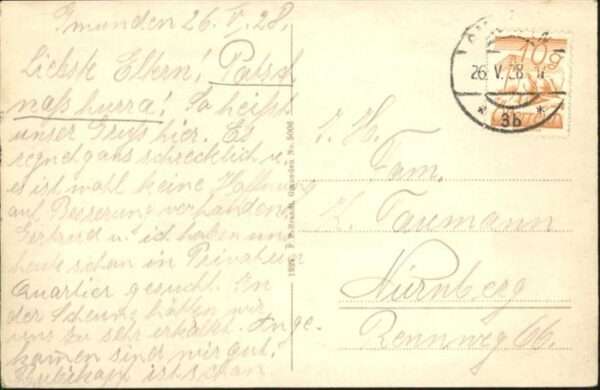 Gmunden 26. V. 28.
Liebste Eltern! Patsch
nass hurra! So heisst
unser Gruss hier. Es
regnet ganz schrecklich u.
es ist wohl keine Hoffnung
auf Besserung vorhanden.
Gertraud u. ich haben uns
heute schon in Privathaus
Quartier gesucht. In
der Scheune hätten wir
uns zu sehr erkältet. Ange-
kommen sind wir gut.
ist schon
1927. F. E. Brandt, Gmunden Nr. 5006
10g
26. V. 28
* 3b *
S. H.
Fam.
K. Taumann
Nürnberg
Rennweg 66.